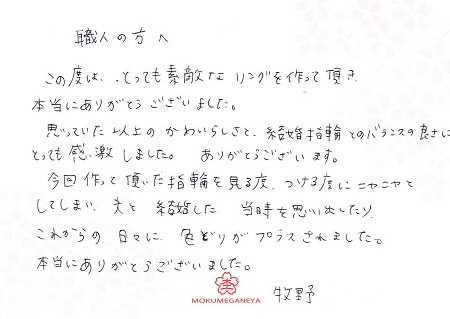 職人の方へ
この度は、とっても素敵なリングを作って頂き、
本当にありがとうございました。
思っていた以上のかわいらしさと、結婚指輪とのバランスの良さに
とっても感激しました。 ありがとうございます。
今回作って頂いた指輪を見る度、つける度にニヤニヤと
してしまい、夫と結婚した当時を思い出したり、
これからの日々に、色どりがプラスされました。
本当にありがとうございました。
牧野
杢
MOKUMEGANEYA